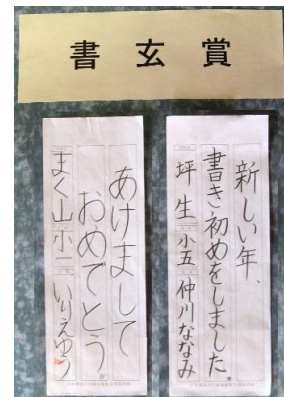 書玄賞
新しい年、
書き初めをしました。
坪生 小五 仲川ななみ
あけまして
おめでとう。
まく山 小二 いりえゆう